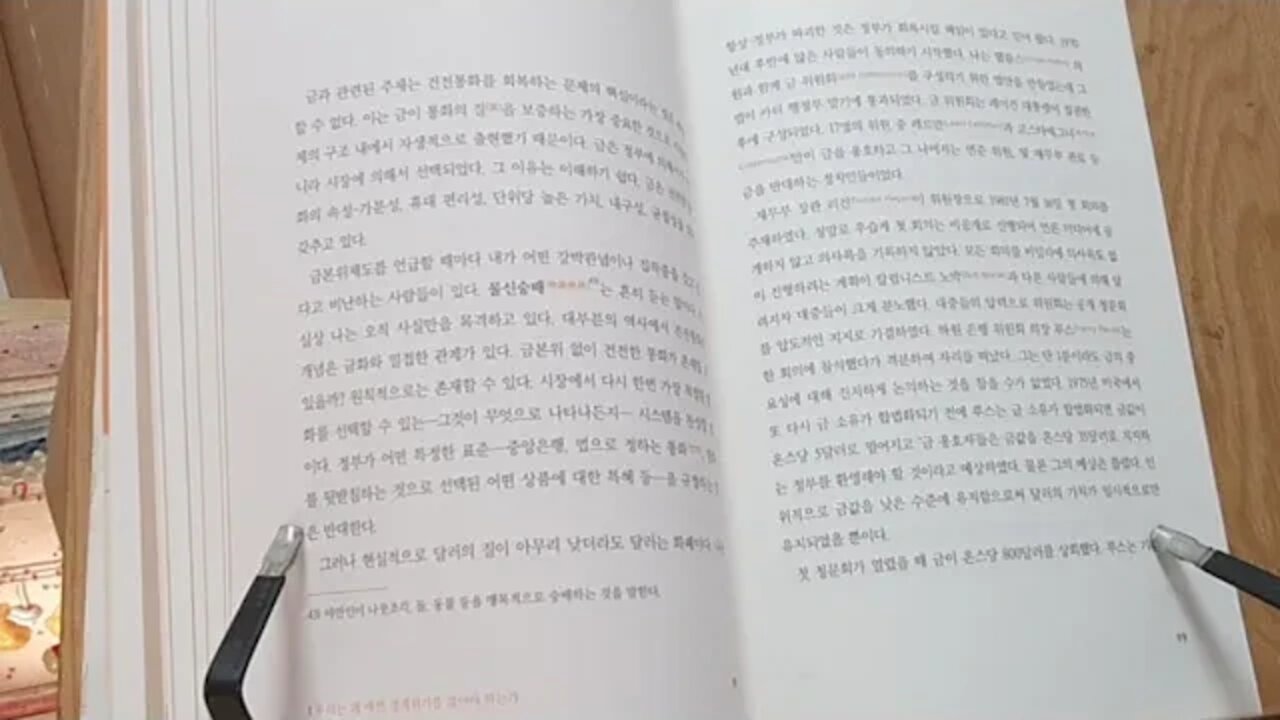 금과 관련된 주제는 건전통화를 회복하는 문제의 핵심이라는
할 수 없다. 이는 금이 통화의 질을 보증하는 가장 중요한 것으로
제의 구조 내에서 자생적으로 출현했기 때문이다. 금은 정부에 의해서
니라 시장에 의해서 선택되었다. 그 이유는 이해하기 쉽다. 금은
화의 속성-가분성, 휴대 편리성, 단위당 높은 가치, 내구성, 균질성을
갖추고 있다.
금본위제도를 언급할 때마다 내가 어떤 강박관념이나 집착증을
다고 비난하는 사람들이 있다. 물신숭배는 흔히 듣는
실상 나는 오직 사실만을 목격하고 있다. 대부분의 역사에서
개념은 금화와 밀접한 관계가 있다. 금본위 없이 건전한 통화가
있을까? 원칙적으로는 존재할 수 있다. 시장에서 다시 한번 가장
화를 선택할 수 있는—그것이 무엇으로 나타나든지— 시스템을
이다. 정부가 어떤 특정한 표준—중앙은행, 법으로 정하는 통화
를 뒷받침하는 것으로 선택된 어떤 상품에 대한 특혜 등—을 규정하는
은 반대한다.
그러나 현실적으로 달러의 질이 아무리 낮더라도 달러는 화폐이다.
43 야만인이 나뭇조각, 돌, 동물 등을 맹목적으로 숭배하는 것을 말한다.
항상 정부가 파괴한 것은 정부가 회복시킬 책임이 있다고 믿어 왔다. 1970
년대 후반에 많은 사람들이 동의하기 시작했다. 나는 헬름스 의
원과 함께 금 위원회를 구성하기 위한 법안을 만들었는데 그
법이 카터 행정부 말기에 통과되었다. 금 위원회는 레이건 대통령이 집권한
후에 구성되었다. 17명의 위원 중 레드먼과 코스타메그나
만이 금을 옹호하고 그 나머지는 연준 위원, 및 재무부 관료 등
금을 반대하는 정치인들이었다.
재무부 장관 리건이 위원장으로 1981년 7월 16일 첫 회의를
주재하였다. 정말로 우습게 첫 회의는 비공개로 진행되어 언론 미디어에 공
개하지 않고 의사록을 기록하지 않았다. 모든 회의를 비밀리에 의사록도 없
이 진행하려는 계획이 칼럼니스트 노박과 다른 사람들에 의해 알
려지자 대중들이 크게 분노했다. 대중들의 압력으로 위원회는 공개 청문회
를 압도적인 지지로 가결하였다. 하원 은행 위원회 의장 루스는
한 회의에 참석했다가 격분하여 자리를 떠났다. 그는 단 1분이라도 금의 중
요성에 대해 진지하게 논의하는 것을 참을 수가 없었다. 1975년 미국에서
또 다시 금 소유가 합법화되기 전에 루스는 금 소유가 합법화되면 금값이
온스당 5달러로 떨어지고 "금 옹호자들은 금값을 온스당 35달러로 지지하
는 정부를 환영해야 할 것이라고 예상하였다. 물론 그의 예상은 틀렸다. 인
위적으로 금값을 낮은 수준에 유지함으로써 달러의 가치가 일시적으로만
유지되었을 뿐이다.
첫 청문회가 열렸을 때 금이 온스당 800달러를 상회했다. 루스는